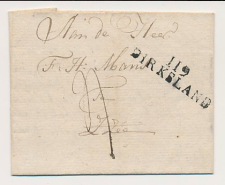 Aan de Heer
F. H. Mans
119
DIRKSLAND
Te